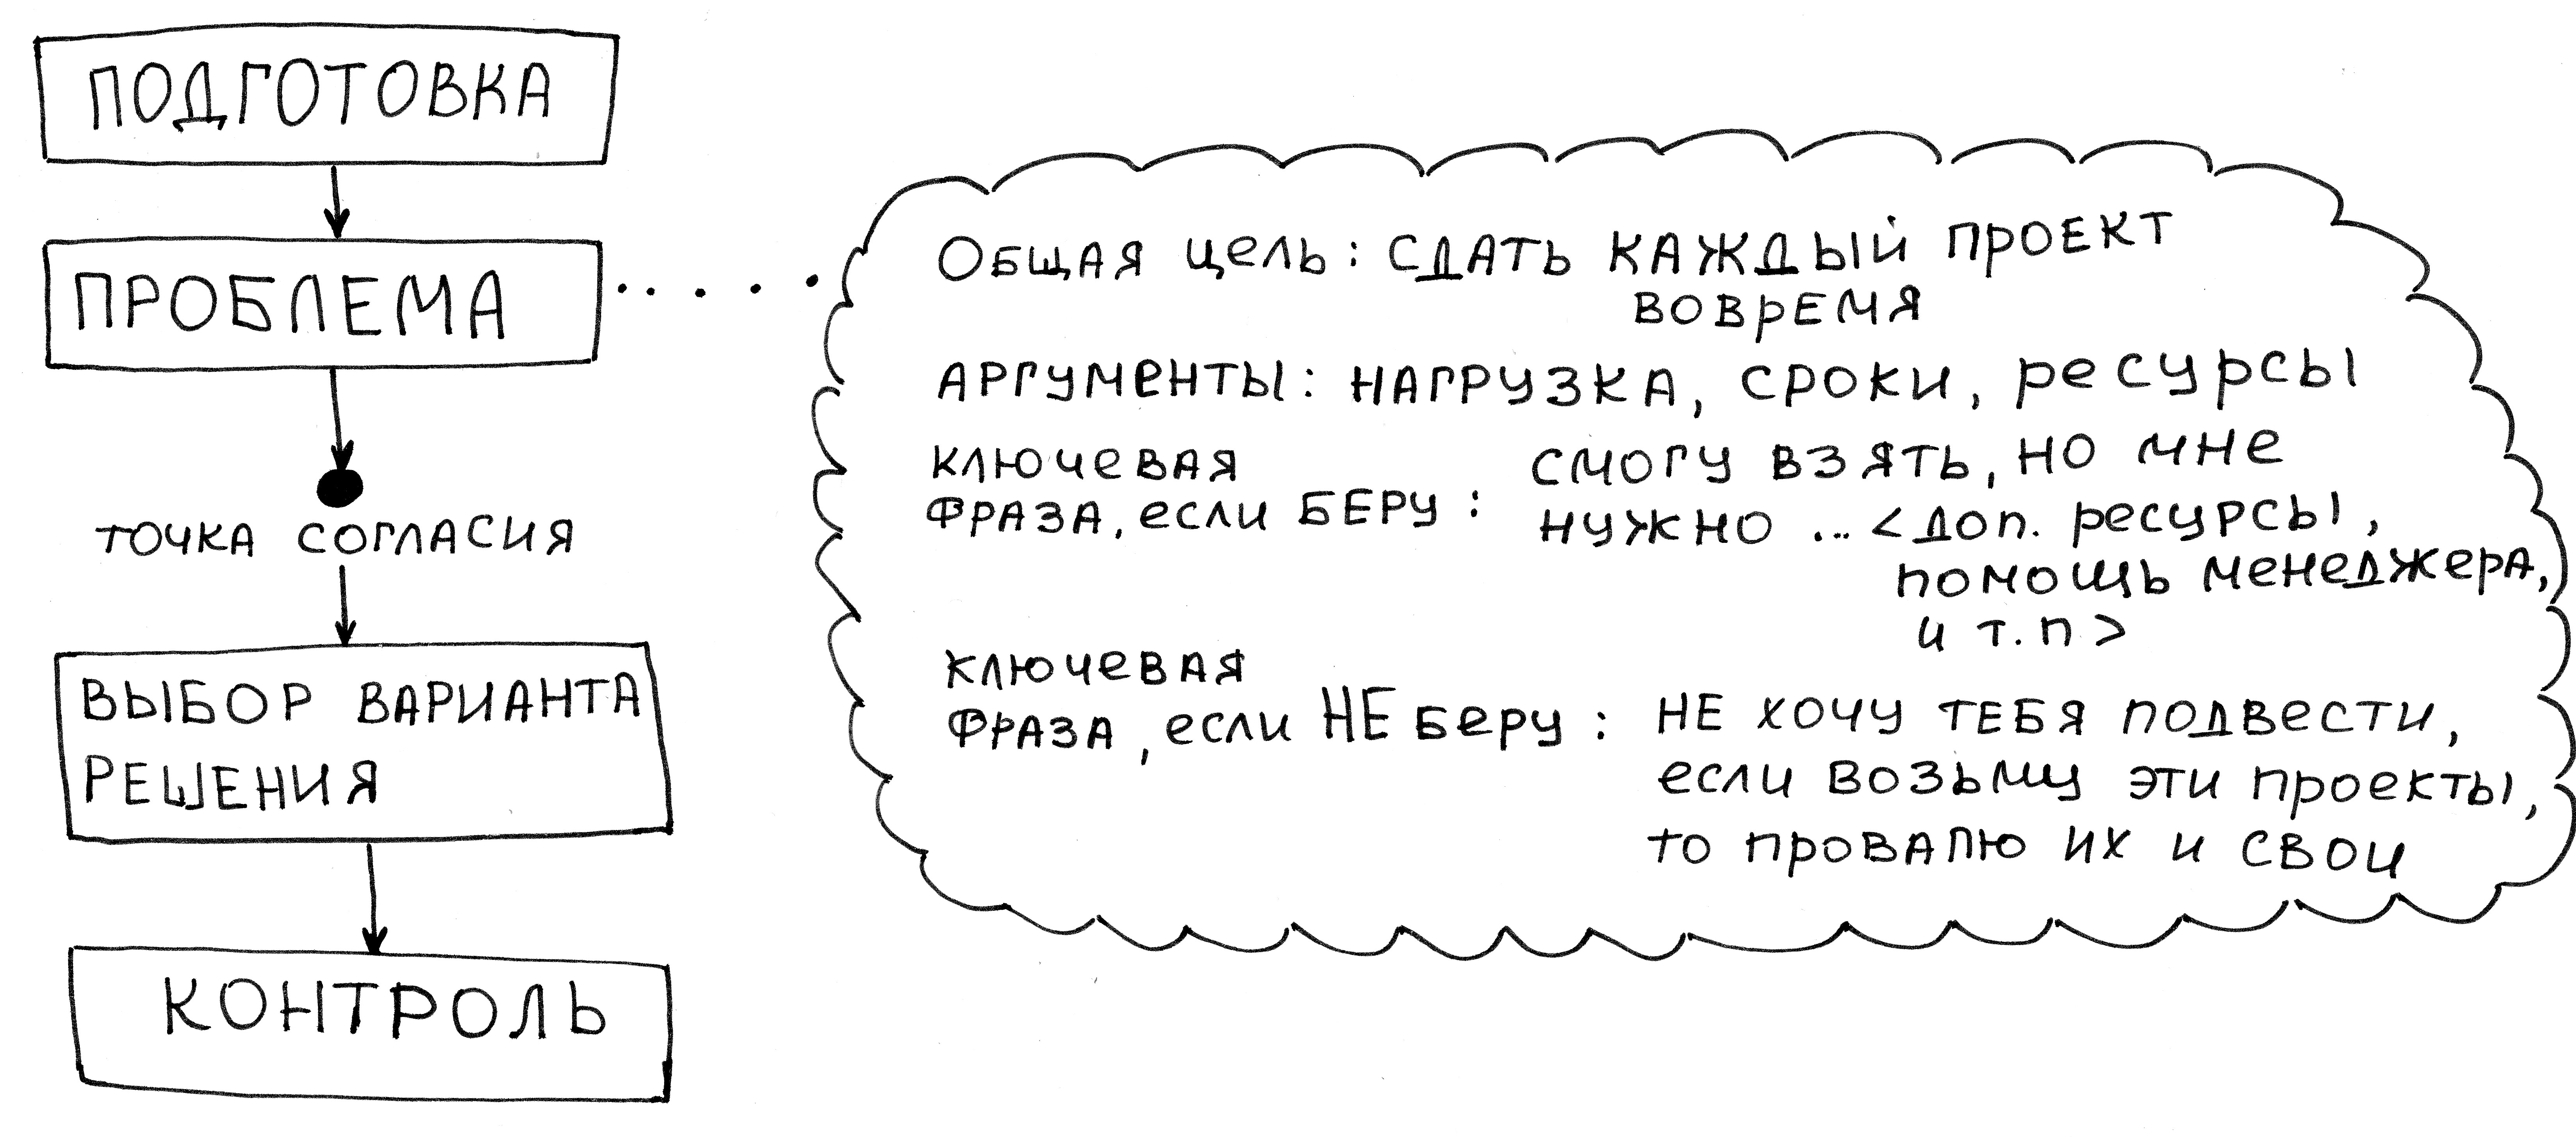 ПОДГОТОВКА
ПРОБЛЕМА
ТОЧКА СОГЛАСИЯ
ВЫБОР ВАРИАНТА
РЕШЕНИЯ
КОНТРОЛЬ
ОБЩАЯ ЦЕЛЬ: СДАТЬ КАЖДЫЙ ПРОЕКТ
ВОВРЕМЯ
АРГУМЕНТЫ: НАГРУЗКА, СРОКИ, РЕСУРСЫ
КЛЮЧЕВАЯ
ФРАЗА, ЕСЛИ БЕРУ:
СМОГУ ВЗЯТЬ, НО МНЕ
НУЖНО ... <ДОП. РЕСУРСЫ,
ПОМОЩЬ МЕНЕДЖЕРА,
И Т.П>
КЛЮЧЕВАЯ
ФРАЗА, ЕСЛИ НЕ БЕРУ:
НЕ ХОЧУ ТЕБЯ ПОДВЕСТИ,
ЕСЛИ ВОЗЬМУ ЭТИ ПРОЕКТЫ,
ТО ПРОВАЛЮ ИХ И СВОИ